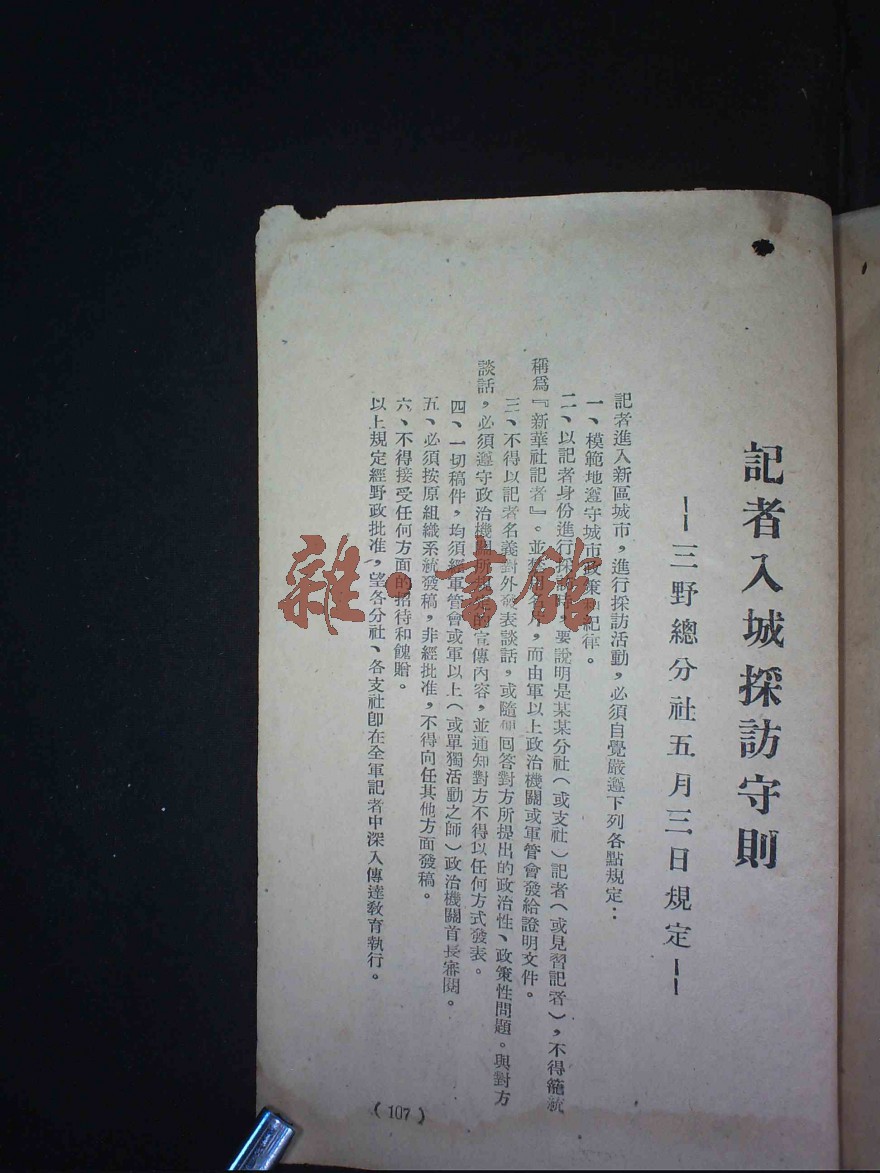 記者入城採訪守則
——三野總分社五月三日規定——
記者進入新區城市,進行採訪活動,必須自覺嚴遵下列各點規定:
一、模範地遵守城市政策和紀律。
二、以記者身份進行採訪時,要說明是某某分社(或支社)記者(或見習記者),不得籠統
稱爲『新華社記者』。並禁用名片,而由軍以上政治機關或軍管會發給證明文件。
三、不得以記者名義對外發表談話,或隨便回答對方所提出的政治性、政策性問題。與對方
談話,必須遵守政治機關所規定的宣傳內容,並通知對方不得以任何方式發表。
四、一切稿件,均須經軍管會或軍以上(或單獨活動之師)政治機關首長審閱。
五、必須按原組織系統發稿,非經批准,不得向任其他方面發稿。
六、不得接受任何方面的招待和餽贈。
以上規定經野政批准,望各分社、各支社卽在全軍記者中深入傳達教育執行。
(107)
雜·書館